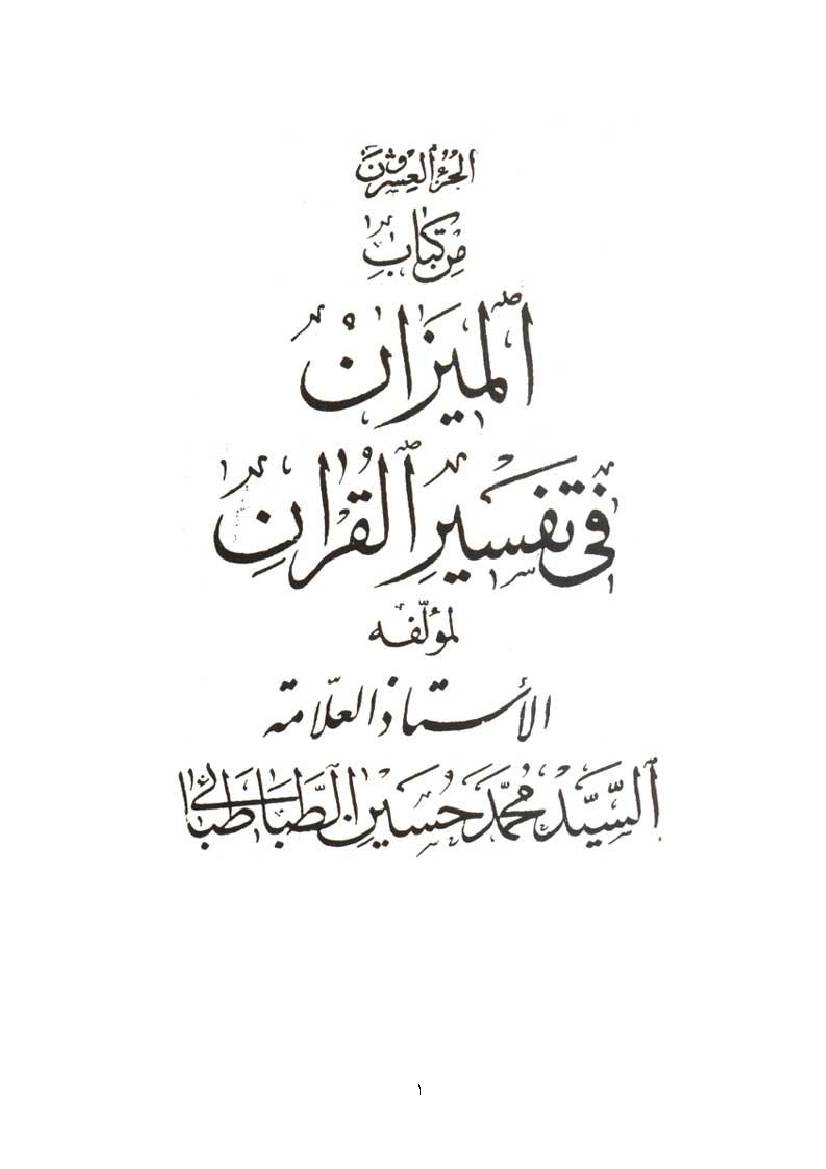 الجزء العشرون
من كتاب
الميزان
في تفسير القرآن
لمؤلفه
الأستاذ العلامة
السيد محمد حسين الطباطبائي
١